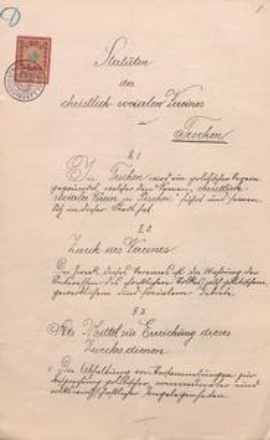 Statuten
des
christlich socialen Vereines
in
Teschen
§ 1
In Teschen wird ein politischer Verein
gegründet, welcher den Namen „christlich-
socialer Verein in Teschen" führt und seinen
Sitz in dieser Stadt hat.
§ 2
Zweck des Vereines
Der Zweck dieses Vereines ist die Wahrung der
Interessen des christlichen Volkes auf politischem,
gewerblichem und socialem Gebiete.
§ 3
Als Mittel zur Erreichung dieses
Zweckes dienen
Die Abhaltung von Versammlungen zur
Besprechung politischer, communaler und
volkswirthschaftlicher Angelegenheiten